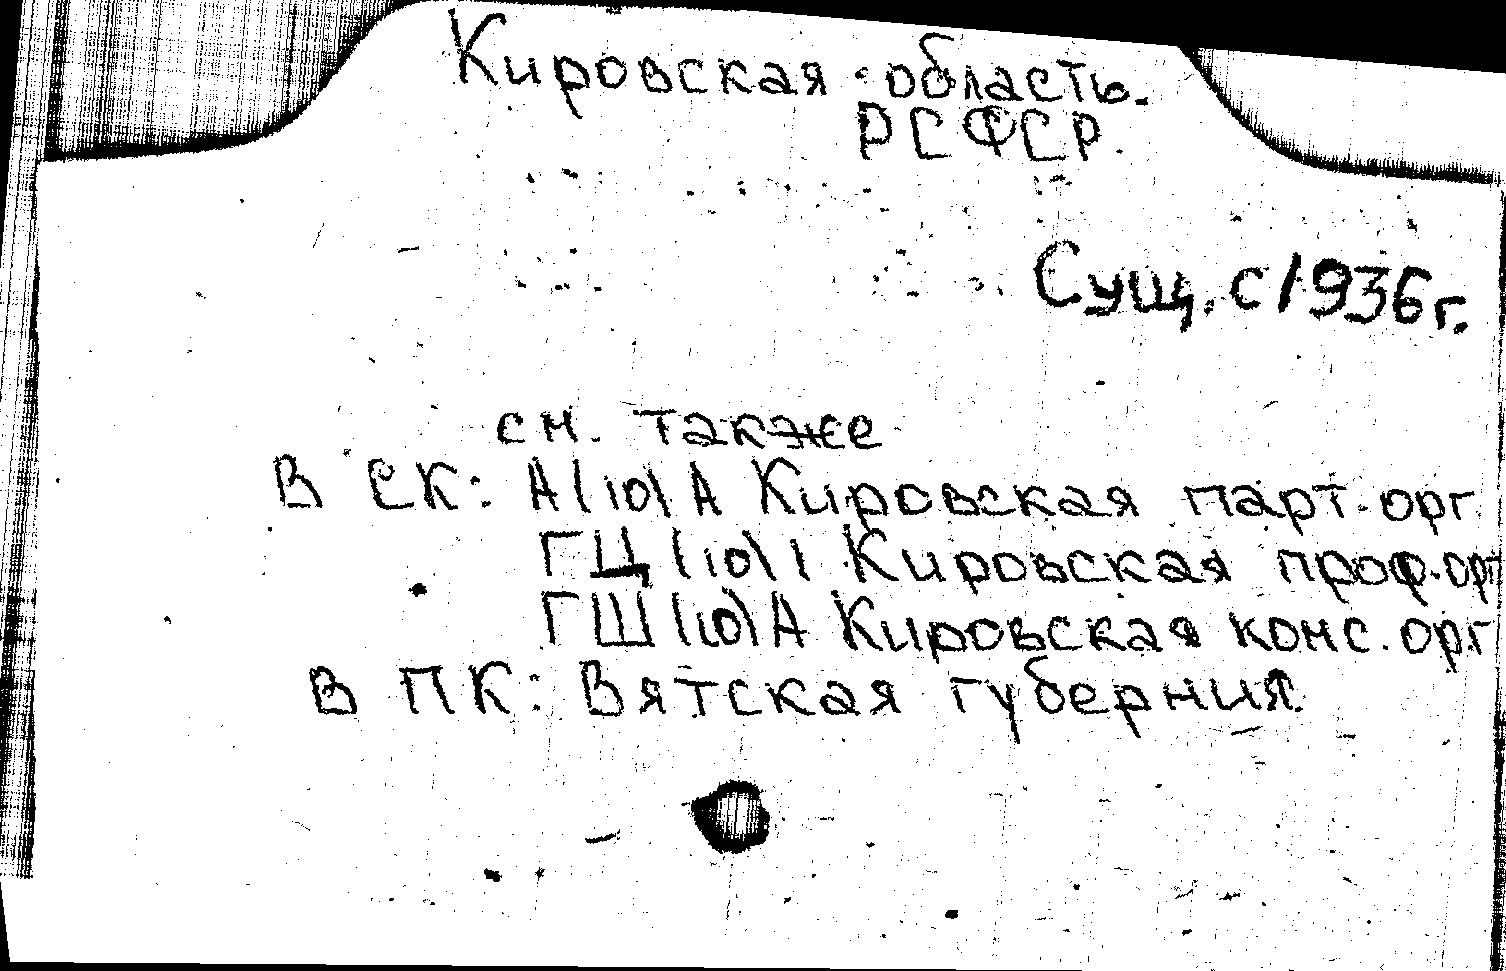 Кировская область.
РСФСР.
Сущ. с 1936 г.
см. также
В СК: А(10)А Кировская парт. орг.
ГЦ(10)1 Кировская проф. орг
ГШ(10)А Кировская комс. орг
В ПК: Вятская губерния.